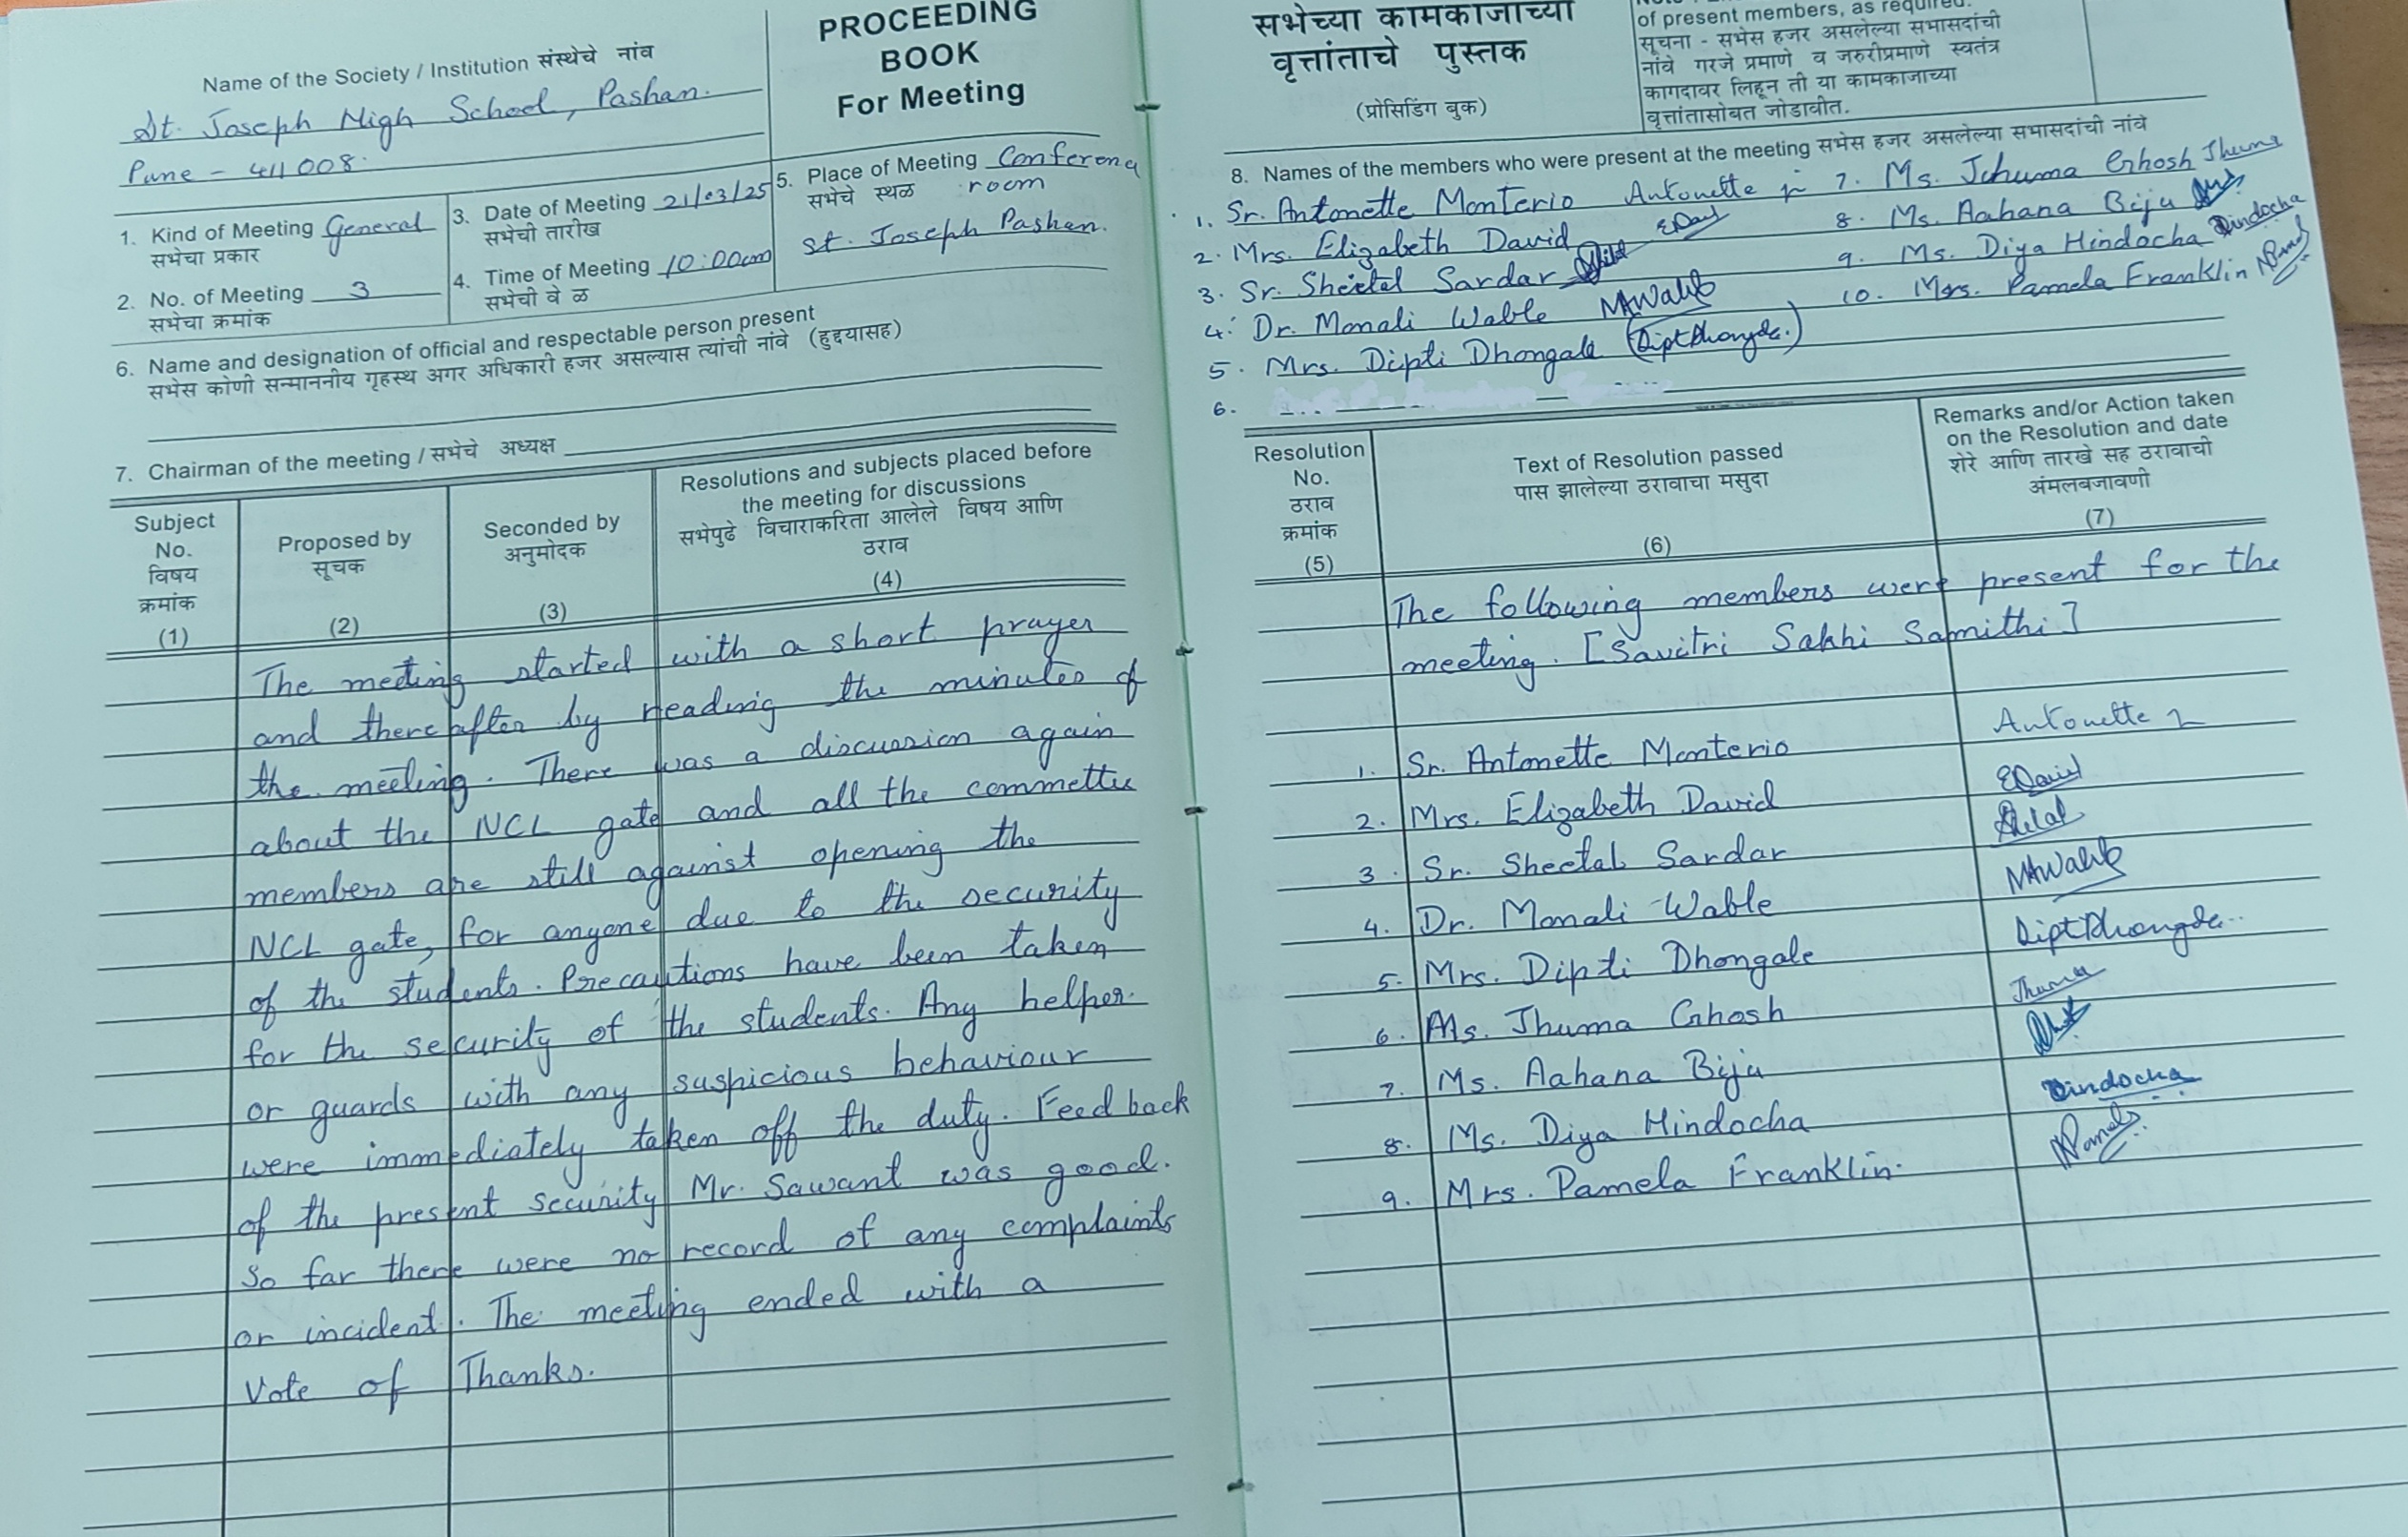 Name of the Society / Institution संस्थेचे नांव
St. Joseph High School, Pashan.
Pune - 411008.
PROCEEDING
BOOK
For Meeting
1. Kind of Meeting General
सभेचा प्रकार
2. No. of Meeting 3
सभेचा क्रमांक
3. Date of Meeting 21/03/25
सभेची तारीख
4. Time of Meeting 10:00am
सभेची वे ळ
5. Place of Meeting Conferenc
सभेचे स्थळ room
St. Joseph Pashan.
6. Name and designation of official and respectable person present
सभेस कोणी सन्माननीय गृहस्थ अगर अधिकारी हजर असल्यास त्यांची नांवे (हुद्दयासह)
7. Chairman of the meeting / सभेचे अध्यक्ष
Subject
No.
विषय
क्रमांक
(1)
Proposed by
सूचक
(2)
Seconded by
अनुमोदक
(3)
Resolutions and subjects placed before
the meeting for discussions
सभेपुढे विचाराकरिता आलेले विषय आणि
ठराव
(4)
The meeting started with a short prayer
and there after by reading the minutes of
the meeting. There was a discussion again
about the NCL gate and all the committee
members are still against opening the
NCL gate, for anyone due to the security
of the students. Precautions have been taken
for the security of the students. Any helper
or guards with any suspicious behaviour
were immediately taken off the duty. Feed back
of the present security Mr. Sawant was good.
So far there were no record of any complaints
or incident. The meeting ended with a
Vote of Thanks.
सभेच्या कामकाजाच्या
वृत्तांताचे पुस्तक
(प्रोसिडिंग बुक)
of present members, as required.
सूचना - सभेस हजर असलेल्या सभासदांची
नांवे गरजे प्रमाणे व जरुरीप्रमाणे स्वतंत्र
कागदावर लिहून ती या कामकाजाच्या
वृत्तांतासोबत जोडावीत.
8. Names of the members who were present at the meeting सभेस हजर असलेल्या सभासदांची नांवे
1. Sr. Antonette Monterio Antonette
2. Mrs. Elizabeth David EDavid
3. Sr. Sheetal Sardar
4. Dr. Monali Wable MAWable
5. Mrs. Dipti Dhongale (DiptDhongde.)
6.
7. Ms. Jhuma Ghosh Jhuma
8. Ms. Aahana Biju
9. Ms. Diya Hindocha Dindocha
10. Mrs. Pamela Franklin
Resolution
No.
ठराव
क्रमांक
(5)
Text of Resolution passed
पास झालेल्या ठरावाचा मसुदा
(6)
Remarks and/or Action taken
on the Resolution and date
शेरे आणि तारखे सह ठरावाची
अंमलबजावणी
(7)
The following members were present for the
meeting. [Savitri Sakhi Samithi]
1. Sr. Antonette Monterio Antonette
2. Mrs. Elizabeth David EDavid
3. Sr. Sheetal Sardar
4. Dr. Monali Wable MAWable
5. Mrs. Dipti Dhongale DiptDhongde..
6. Ms. Jhuma Ghosh Jhuma
7. Ms. Aahana Biju
8. Ms. Diya Hindocha Dindocha
9. Mrs. Pamela Franklin.